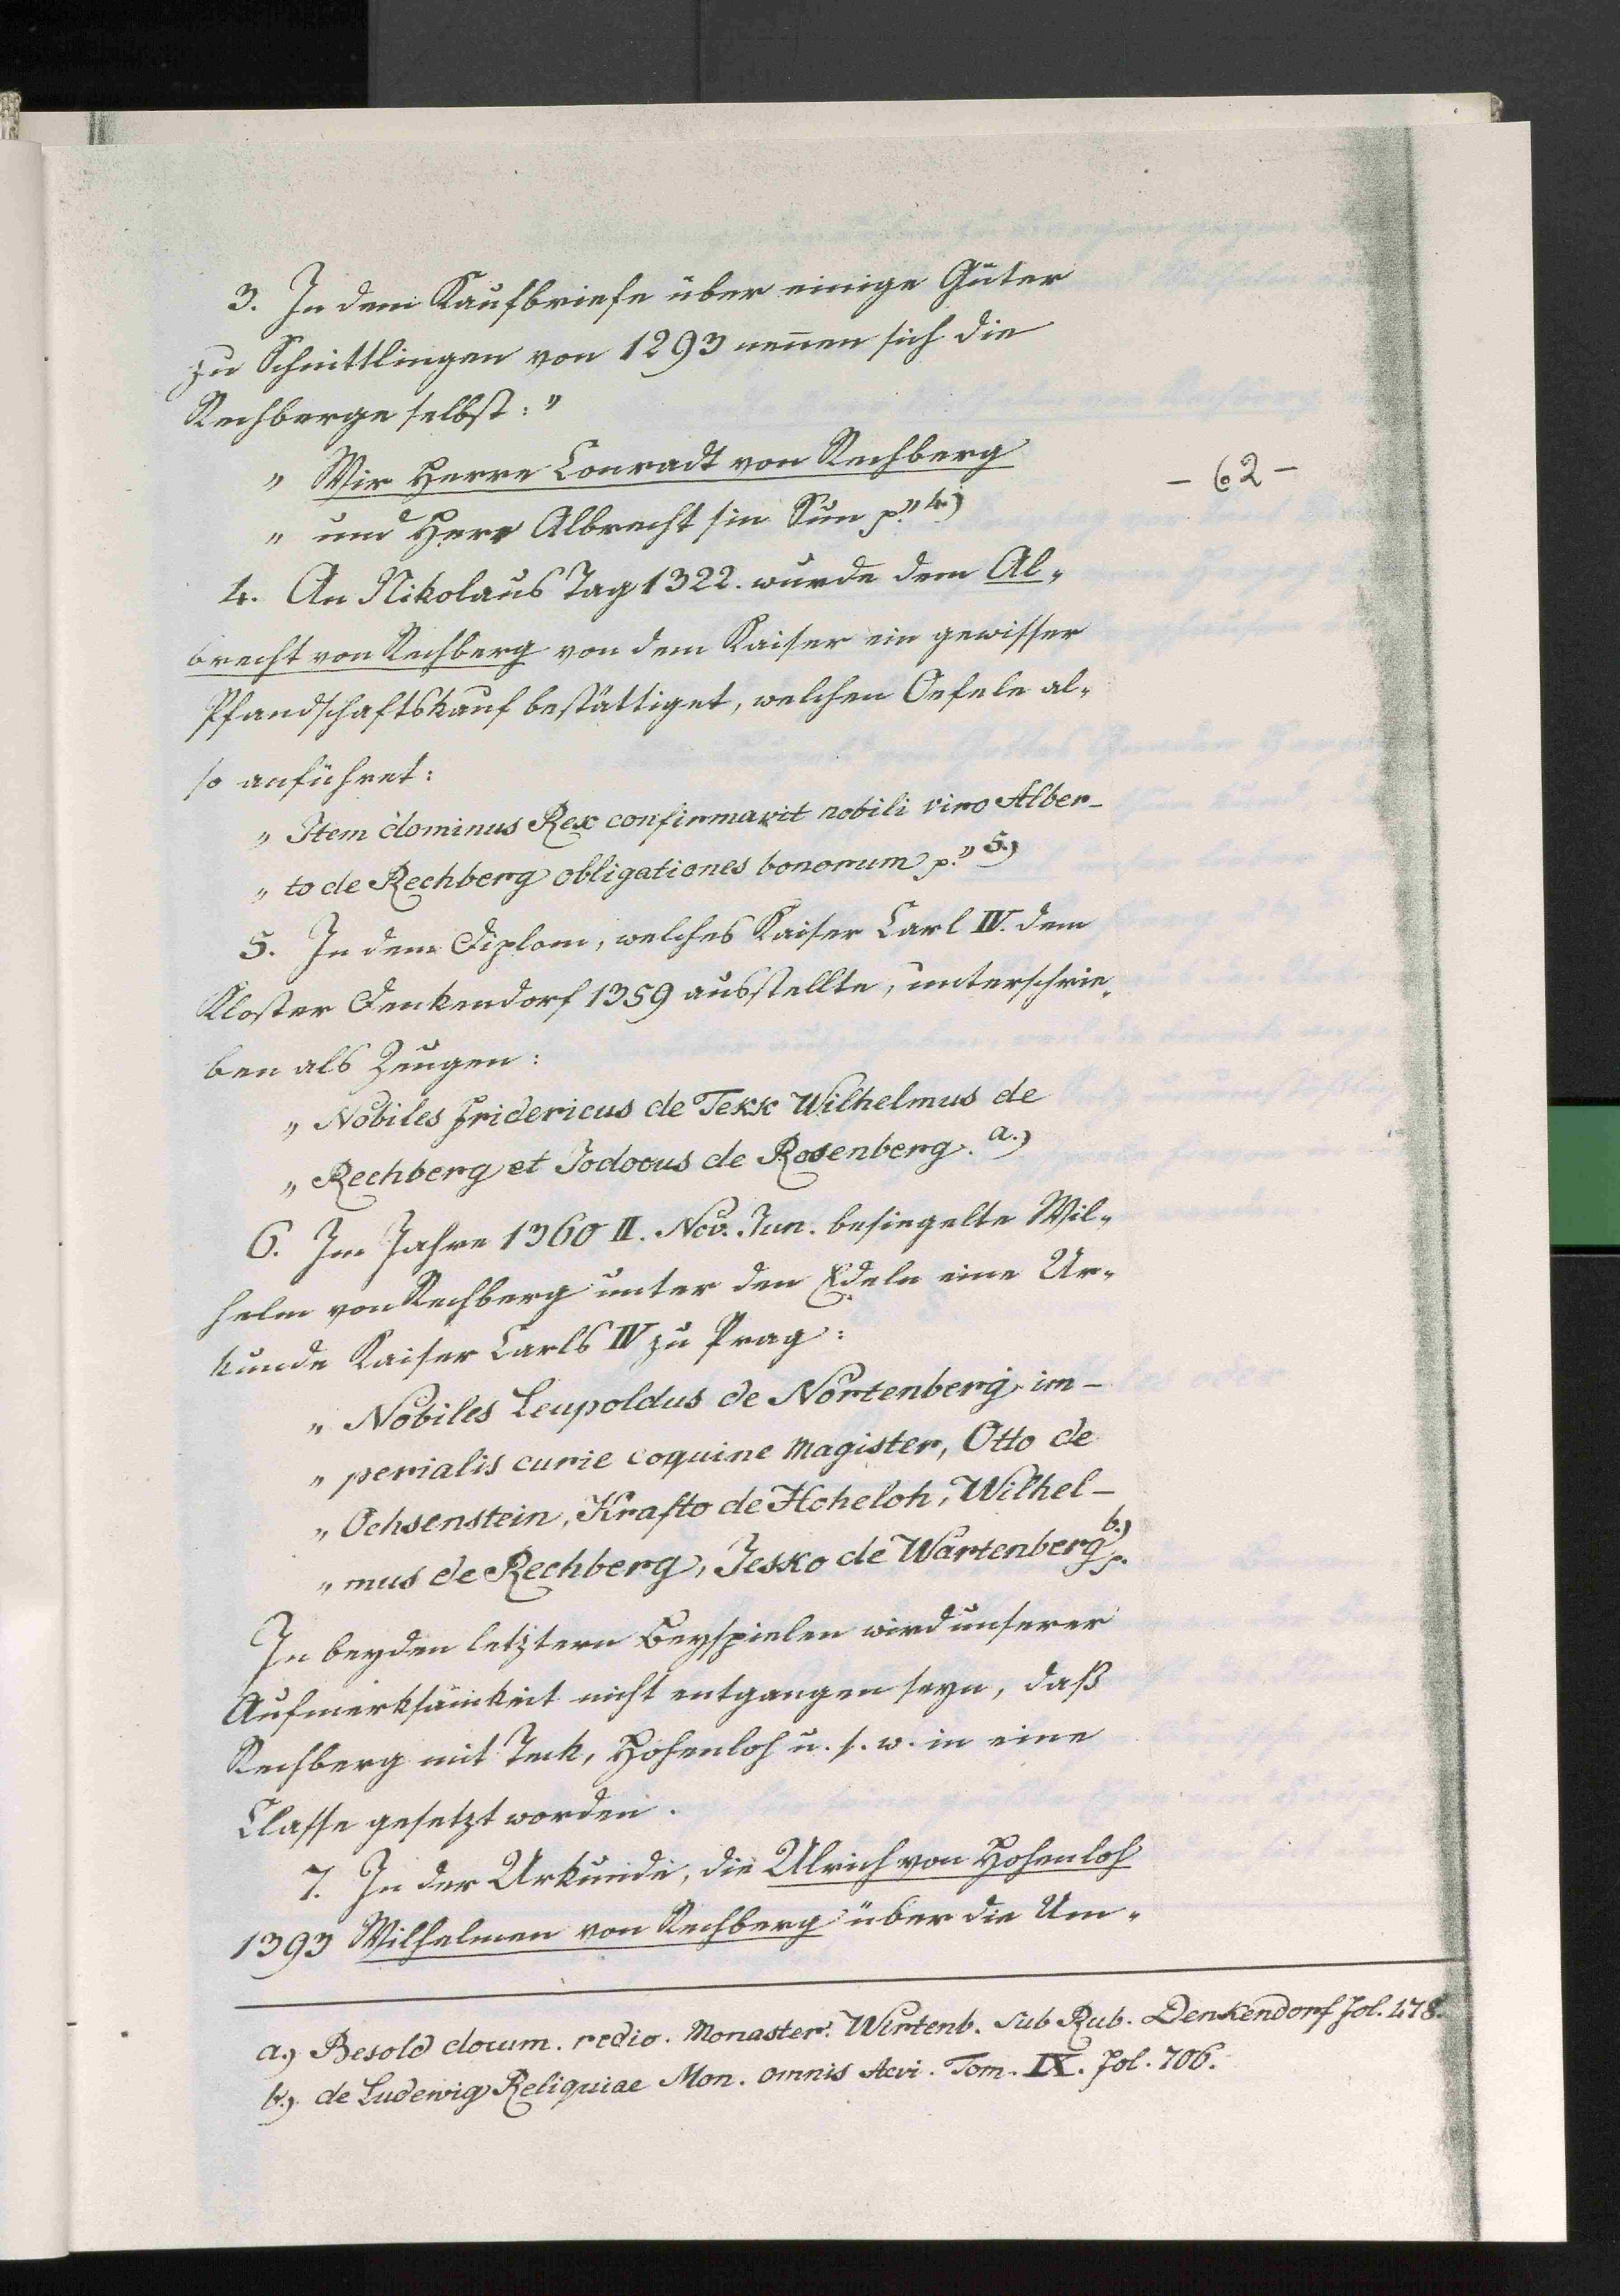 3. In dem Kaufbriefe über einige Güter
zu Schnittlingen von 1293 nennen sich die
Rechberge selbst: "
" Wir Herre Conradt von Rechberg
- 62 -
" und Herr Albrecht sin Sun p." 4.)
4. An Nikolaus Tag 1322. wurde dem Al-
brecht von Rechberg von dem Kaiser ein gewisser
Pfandschaftskauf bestättiget, welchen Oefele al-
so anführet:
" Item dominus Rex confirmavit nobili viro Alber-
" to de Rechberg obligationes bonorum p." 5.)
5. In dem Diplom, welches Kaiser Carl IV. dem
Kloster Denkendorf 1359 ausstellte, unterschrie-
ben als Zeugen:
" Nobiles Fridericus de Tekk Wilhelmus de
" Rechberg et Jodocus de Rosenberg. a.)
6. Im Jahre 1360 II. Nov. Jun. besiegelte Wil-
helm von Rechberg unter den Edeln eine Ur-
kunde Kaiser Carls IV zu Prag:
" Nobiles Leupoldus de Nortenberg im-
" perialis curie coquine Magister, Otto de
" Ochsenstein, Krafto de Hoheloh, Wilhel-
" mus de Rechberg, Jesko de Wartenberg p. b.)
In beyden letztern Beyspielen wird unserer
Aufmerksamkeit nicht entgangen seyn, daß
Rechberg mit Teck, Hohenloh u. s. w. in eine
Classe gesetzt worden.
7. In der Urkunde, die Ulrich von Hohenloh
1393 Wilhelmen von Rechberg über die Um-
a.) Besold docum. redio. Monaster. Wirtenb. sub Rub. Denkendorf fol. 478.
b.) de Ludewig Reliquiae Mon. omnis Aevi. Tom. IX. fol. 706.